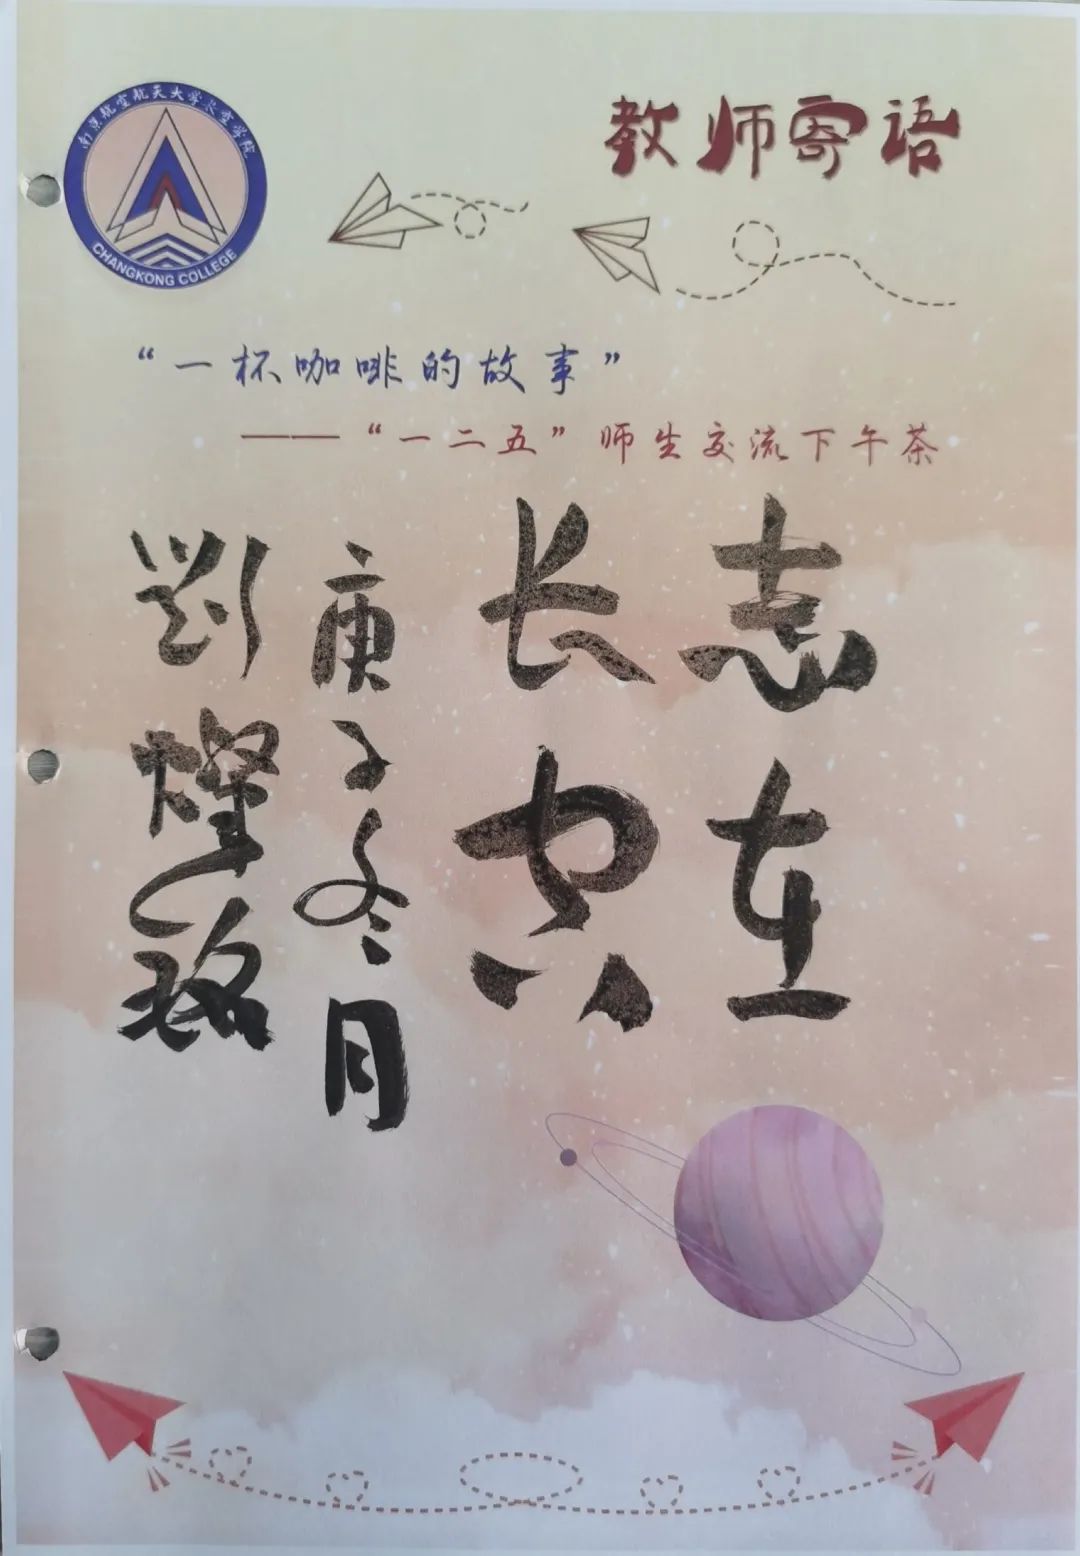 南京航空航天大学长空学院
CHANGKONG COLLEGE
教师寄语
“一杯咖啡的故事”
——“一二五”师生交流下午茶
志在
长
庚子冬月
劉